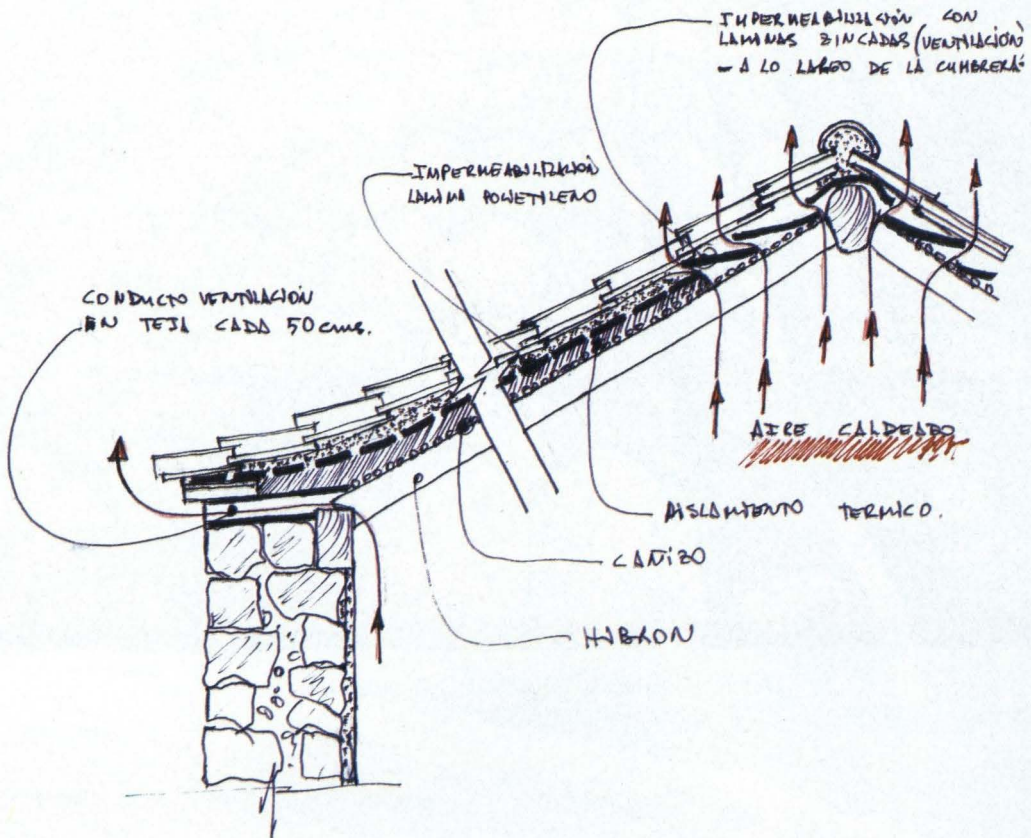 IMPERMEABILIZACIÓN CON
LAMINAS ZINCADAS (VENTILACIÓN)
- A LO LARGO DE LA CUMBRERA
IMPERMEABILIZACIÓN
LAMINA POLIETILENO
CONDUCTO VENTILACIÓN
EN TEJA CADA 50 cms.
AIRE CALDEADO
AISLAMIENTO TERMICO.
CAÑIZO